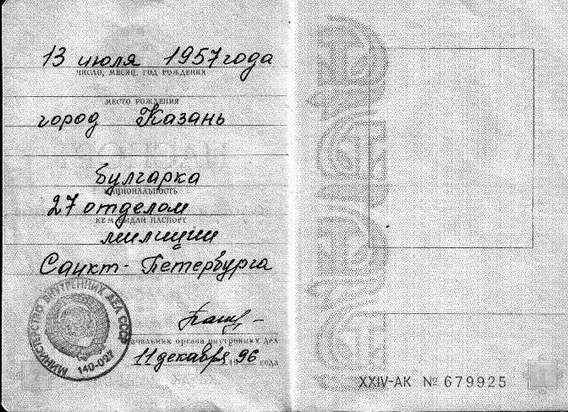 13 июля 1957 года
ЧИСЛО, МЕСЯЦ, ГОД РОЖДЕНИЯ
МЕСТО РОЖДЕНИЯ
город Казань
булгарка
НАЦИОНАЛЬНОСТЬ
27 отделом
КЕМ ВЫДАН ПАСПОРТ
милиции
Санкт-Петербурга
МИНИСТЕРСТВО ВНУТРЕННИХ ДЕЛ СССР
140-097
Начальник органа внутренних дел
11 декабря 1996 года
XXIV-АК № 679925